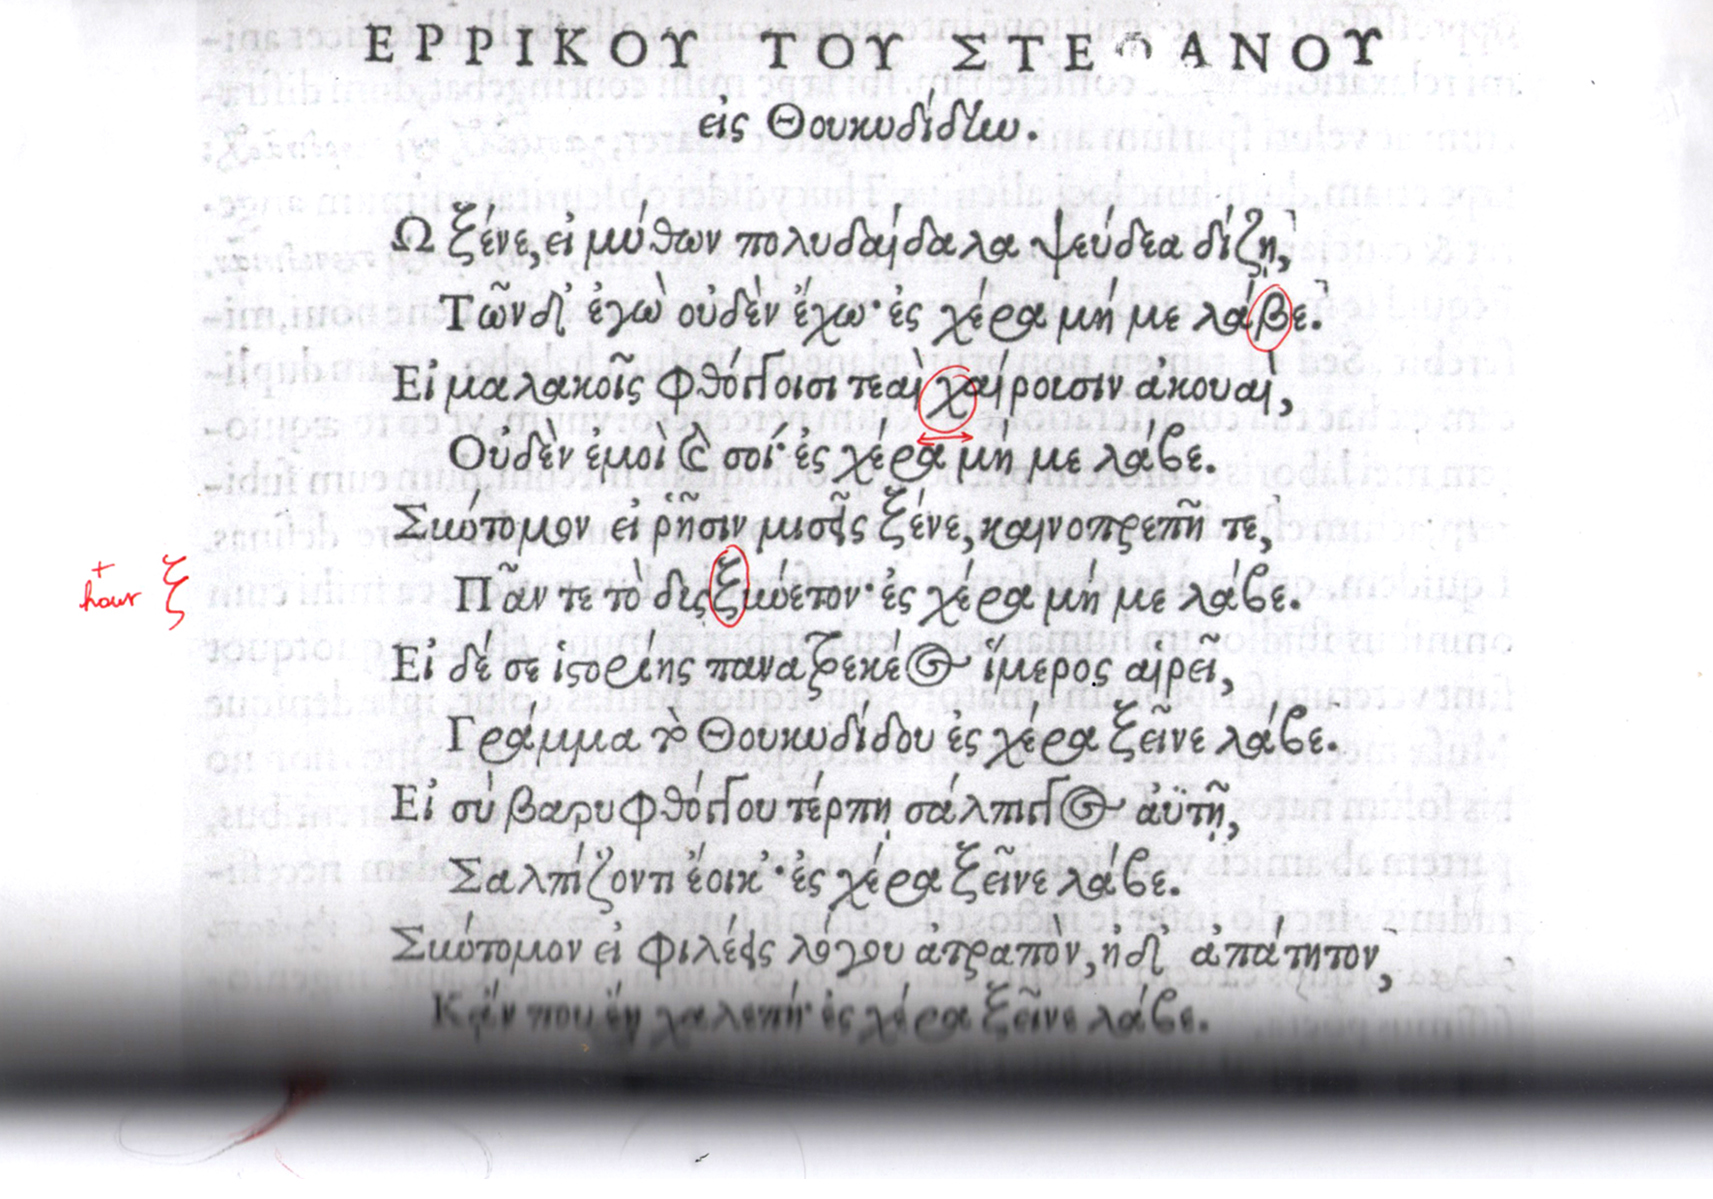 ΕΡΡΙΚΟΥ ΤΟΥ ΣΤΕΦΑΝΟΥ
εἰς Θουκυδίδην.
Ω ξένε, εἰ μύθων πολυδαίδαλα ψεύδεα δίζῃ,
Τῶνδ' ἐγὼ οὐδὲν ἔχω· ἐς χέρα μή με λάβε.
Εἰ μαλακοῖς φθόγγοισι τεαὶ χαίροισιν ἀκουαὶ,
Οὐδὲν ἐμοὶ καὶ σοί· ἐς χέρα μή με λάβε.
Σκώτομον εἰ ῥῆσιν μισεῖς ξένε, καινοπρεπῆ τε,
+
haur ξ
Πᾶν τε τὸ δις ξκώετον· ἐς χέρα μή με λάβε.
Εἰ δέ σε ἱστορίης παναξεκέος ἵμερος αἱρεῖ,
Γράμμα τὸ Θουκυδίδου ἐς χέρα ξεῖνε λάβε.
Εἰ σὺ βαρυφθόγγου τέρπῃ σάλπιγγος ἀϋτῇ,
Σαλπίζοντι ἔοικ'· ἐς χέρα ξεῖνε λάβε.
Σκώτομον εἰ φιλέεις λόγου ἀτραπὸν, ἠδ' ἀπάτητον,
Κἄν που ἔῃ χαλεπή· ἐς χέρα ξεῖνε λάβε.